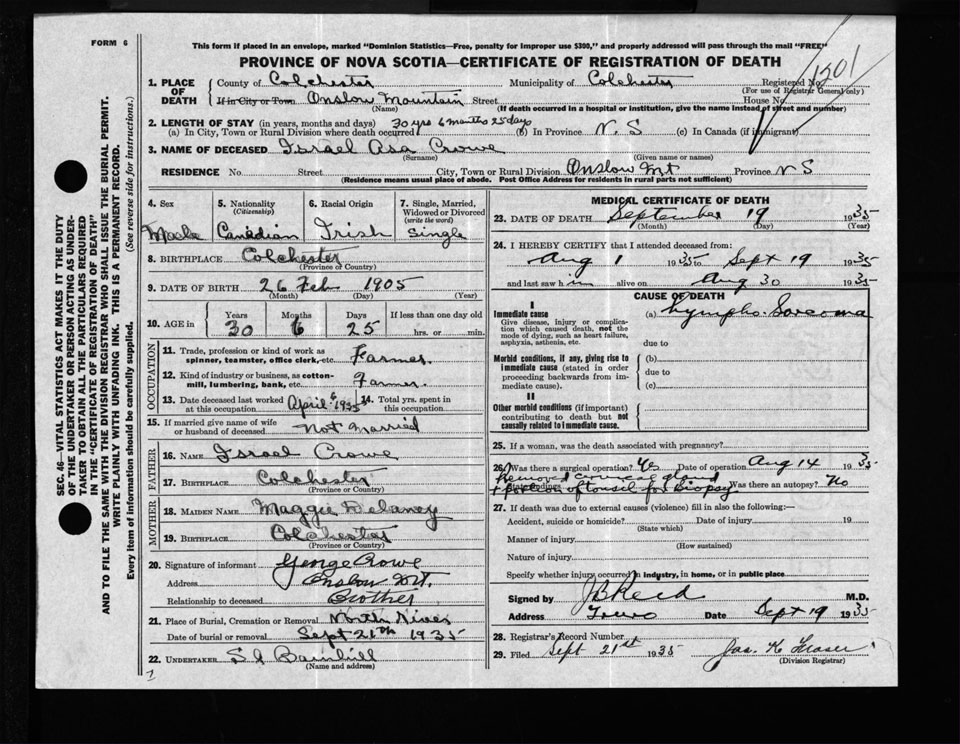 FORM 6
This form if placed in an envelope, marked "Dominion Statistics—Free, penalty for improper use $300," and properly addressed will pass through the mail "FREE"
PROVINCE OF NOVA SCOTIA—CERTIFICATE OF REGISTRATION OF DEATH
1201
1. PLACE OF DEATH County of Colchester Municipality of Colchester Registered No.
(For use of Registrar General only)
If in City or Town Onslow Mountain Street House No.
(Name) (If death occurred in a hospital or institution, give the name instead of street and number)
2. LENGTH OF STAY (in years, months and days) 30 yrs 6 months 25 days
(a) In City, Town or Rural Division where death occurred (b) In Province N. S (c) In Canada (if immigrant)
3. NAME OF DECEASED Israel Asa Crowe
(Surname) (Given name or names)
RESIDENCE No. Street City, Town or Rural Division Onslow Mt Province N S
(Residence means usual place of abode. Post Office Address for residents in rural parts not sufficient)
4. Sex 5. Nationality (Citizenship) 6. Racial Origin 7. Single, Married, Widowed or Divorced (write the word)
Male Canadian Irish Single
8. BIRTHPLACE Colchester
(Province or Country)
9. DATE OF BIRTH 26 Feb 1905
(Month) (Day) (Year)
10. AGE in Years Months Days If less than one day old
30 6 25 hrs. or min.
OCCUPATION
11. Trade, profession or kind of work as spinner, teamster, office clerk, etc. Farmer.
12. Kind of industry or business, as cotton-mill, lumbering, bank, etc. Farmer.
13. Date deceased last worked at this occupation April 1935 14. Total yrs. spent in this occupation
15. If married give name of wife or husband of deceased Not Married
FATHER
16. NAME Israel Crowe
17. BIRTHPLACE Colchester
(Province or Country)
MOTHER
18. MAIDEN NAME Maggie Delaney
19. BIRTHPLACE Colchester
(Province or Country)
20. Signature of informant George Crowe
Address Onslow Mt.
Relationship to deceased Brother
21. Place of Burial, Cremation or Removal North River
Date of burial or removal Sept 21th 1935
22. UNDERTAKER
(Name and address)
MEDICAL CERTIFICATE OF DEATH
23. DATE OF DEATH September 19 1935
(Month) (Day) (Year)
24. I HEREBY CERTIFY that I attended deceased from:
Aug 1 1935 to Sept 19 1935
and last saw him alive on Aug 30 1935
CAUSE OF DEATH
I
Immediate cause (a) Lympho-Sarcoma
Give disease, injury or complication which caused death, not the mode of dying, such as heart failure, asphyxia, asthenia, etc.
due to
Morbid conditions, if any, giving rise to immediate cause (stated in order proceeding backwards from immediate cause).
(b)
due to
(c)
II
Other morbid conditions (if important) contributing to death but not causally related to immediate cause.
25. If a woman, was the death associated with pregnancy?
26. Was there a surgical operation? Yes Date of operation Aug 14 1935
Removed cervical gland
+ portion of tonsil for Biopsy Was there an autopsy? No
27. If death was due to external causes (violence) fill in also the following:—
Accident, suicide or homicide? Date of injury 19
(State which)
Manner of injury
(How sustained)
Nature of injury
Specify whether injury occurred in industry, in home, or in public place
Signed by J B Reid M.D.
Address Truro Date Sept 19 1935
28. Registrar's Record Number
29. Filed Sept 21st 1935 Jas. H Fraser
(Division Registrar)
SEC. 46—VITAL STATISTICS ACT MAKES IT THE DUTY
OF THE UNDERTAKER OR PERSON ACTING AS UNDER-
TAKER TO OBTAIN ALL THE PARTICULARS REQUIRED
IN THE "CERTIFICATE OF REGISTRATION OF DEATH"
AND TO FILE THE SAME WITH THE DIVISION REGISTRAR WHO SHALL ISSUE THE BURIAL PERMIT.
WRITE PLAINLY WITH UNFADING INK. THIS IS A PERMANENT RECORD.
Every item of information should be carefully supplied. (See reverse side for instructions.)